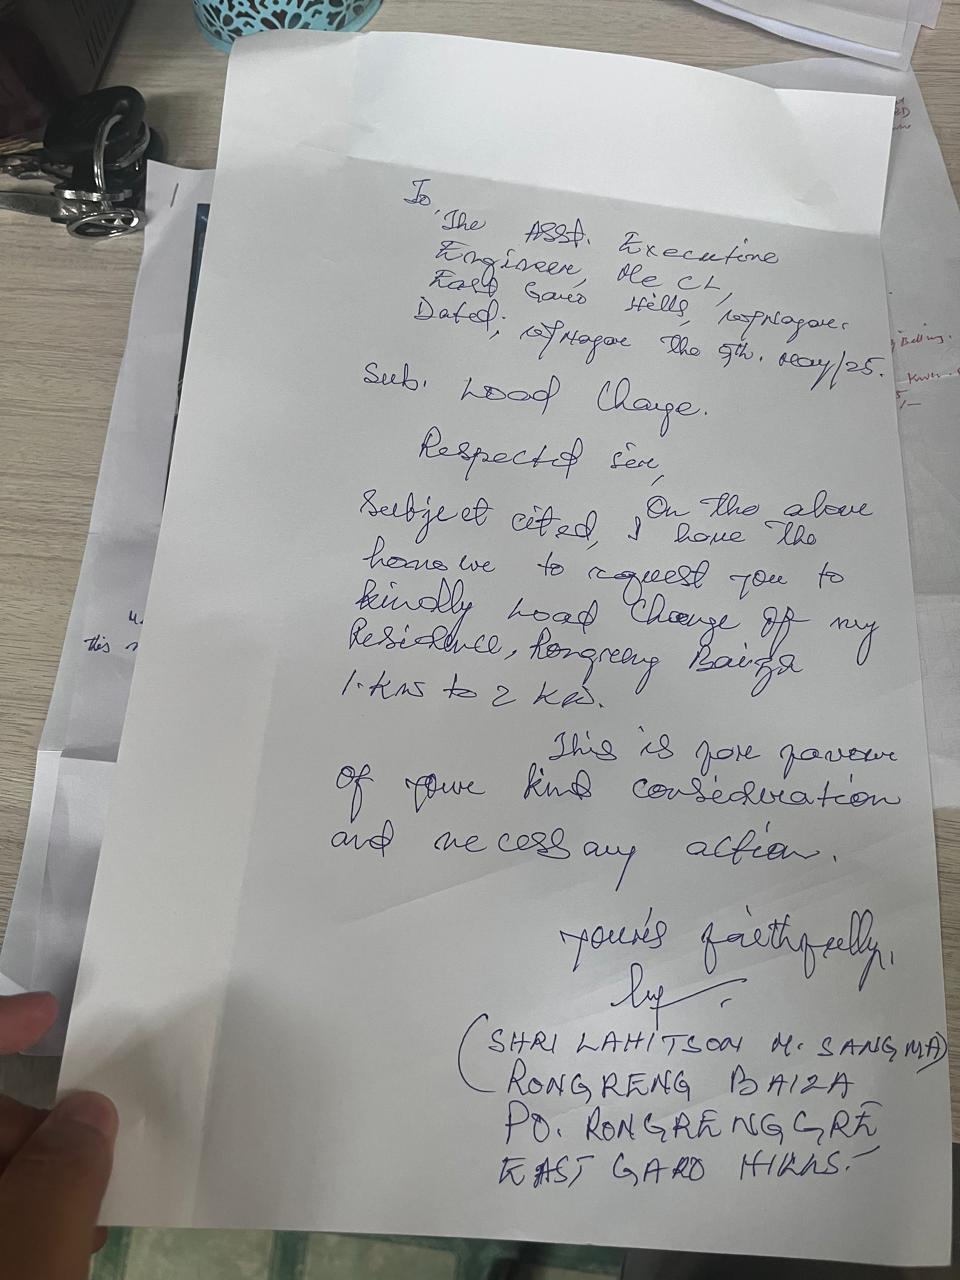 To,
The Asst. Executive
Engineer, MeCL,
East Garo Hills, W/Nagar.
Dated, W/Nagar The 9th. May/25.
Sub. Load Change.
Respected Sir,
On the above
Subject cited, I have the
honour to request you to
kindly Load Change of my
Residence, Rongreng Baiza
1.KW to 2 KW.
This is for favour
of your kind consideration
and necessary action.
Yours faithfully,
(SHRI LAHITSON M. SANGMA)
RONGRENG BAIZA
PO. RONGRENGGRE
EAST GARO HILLS.
this
Billing.